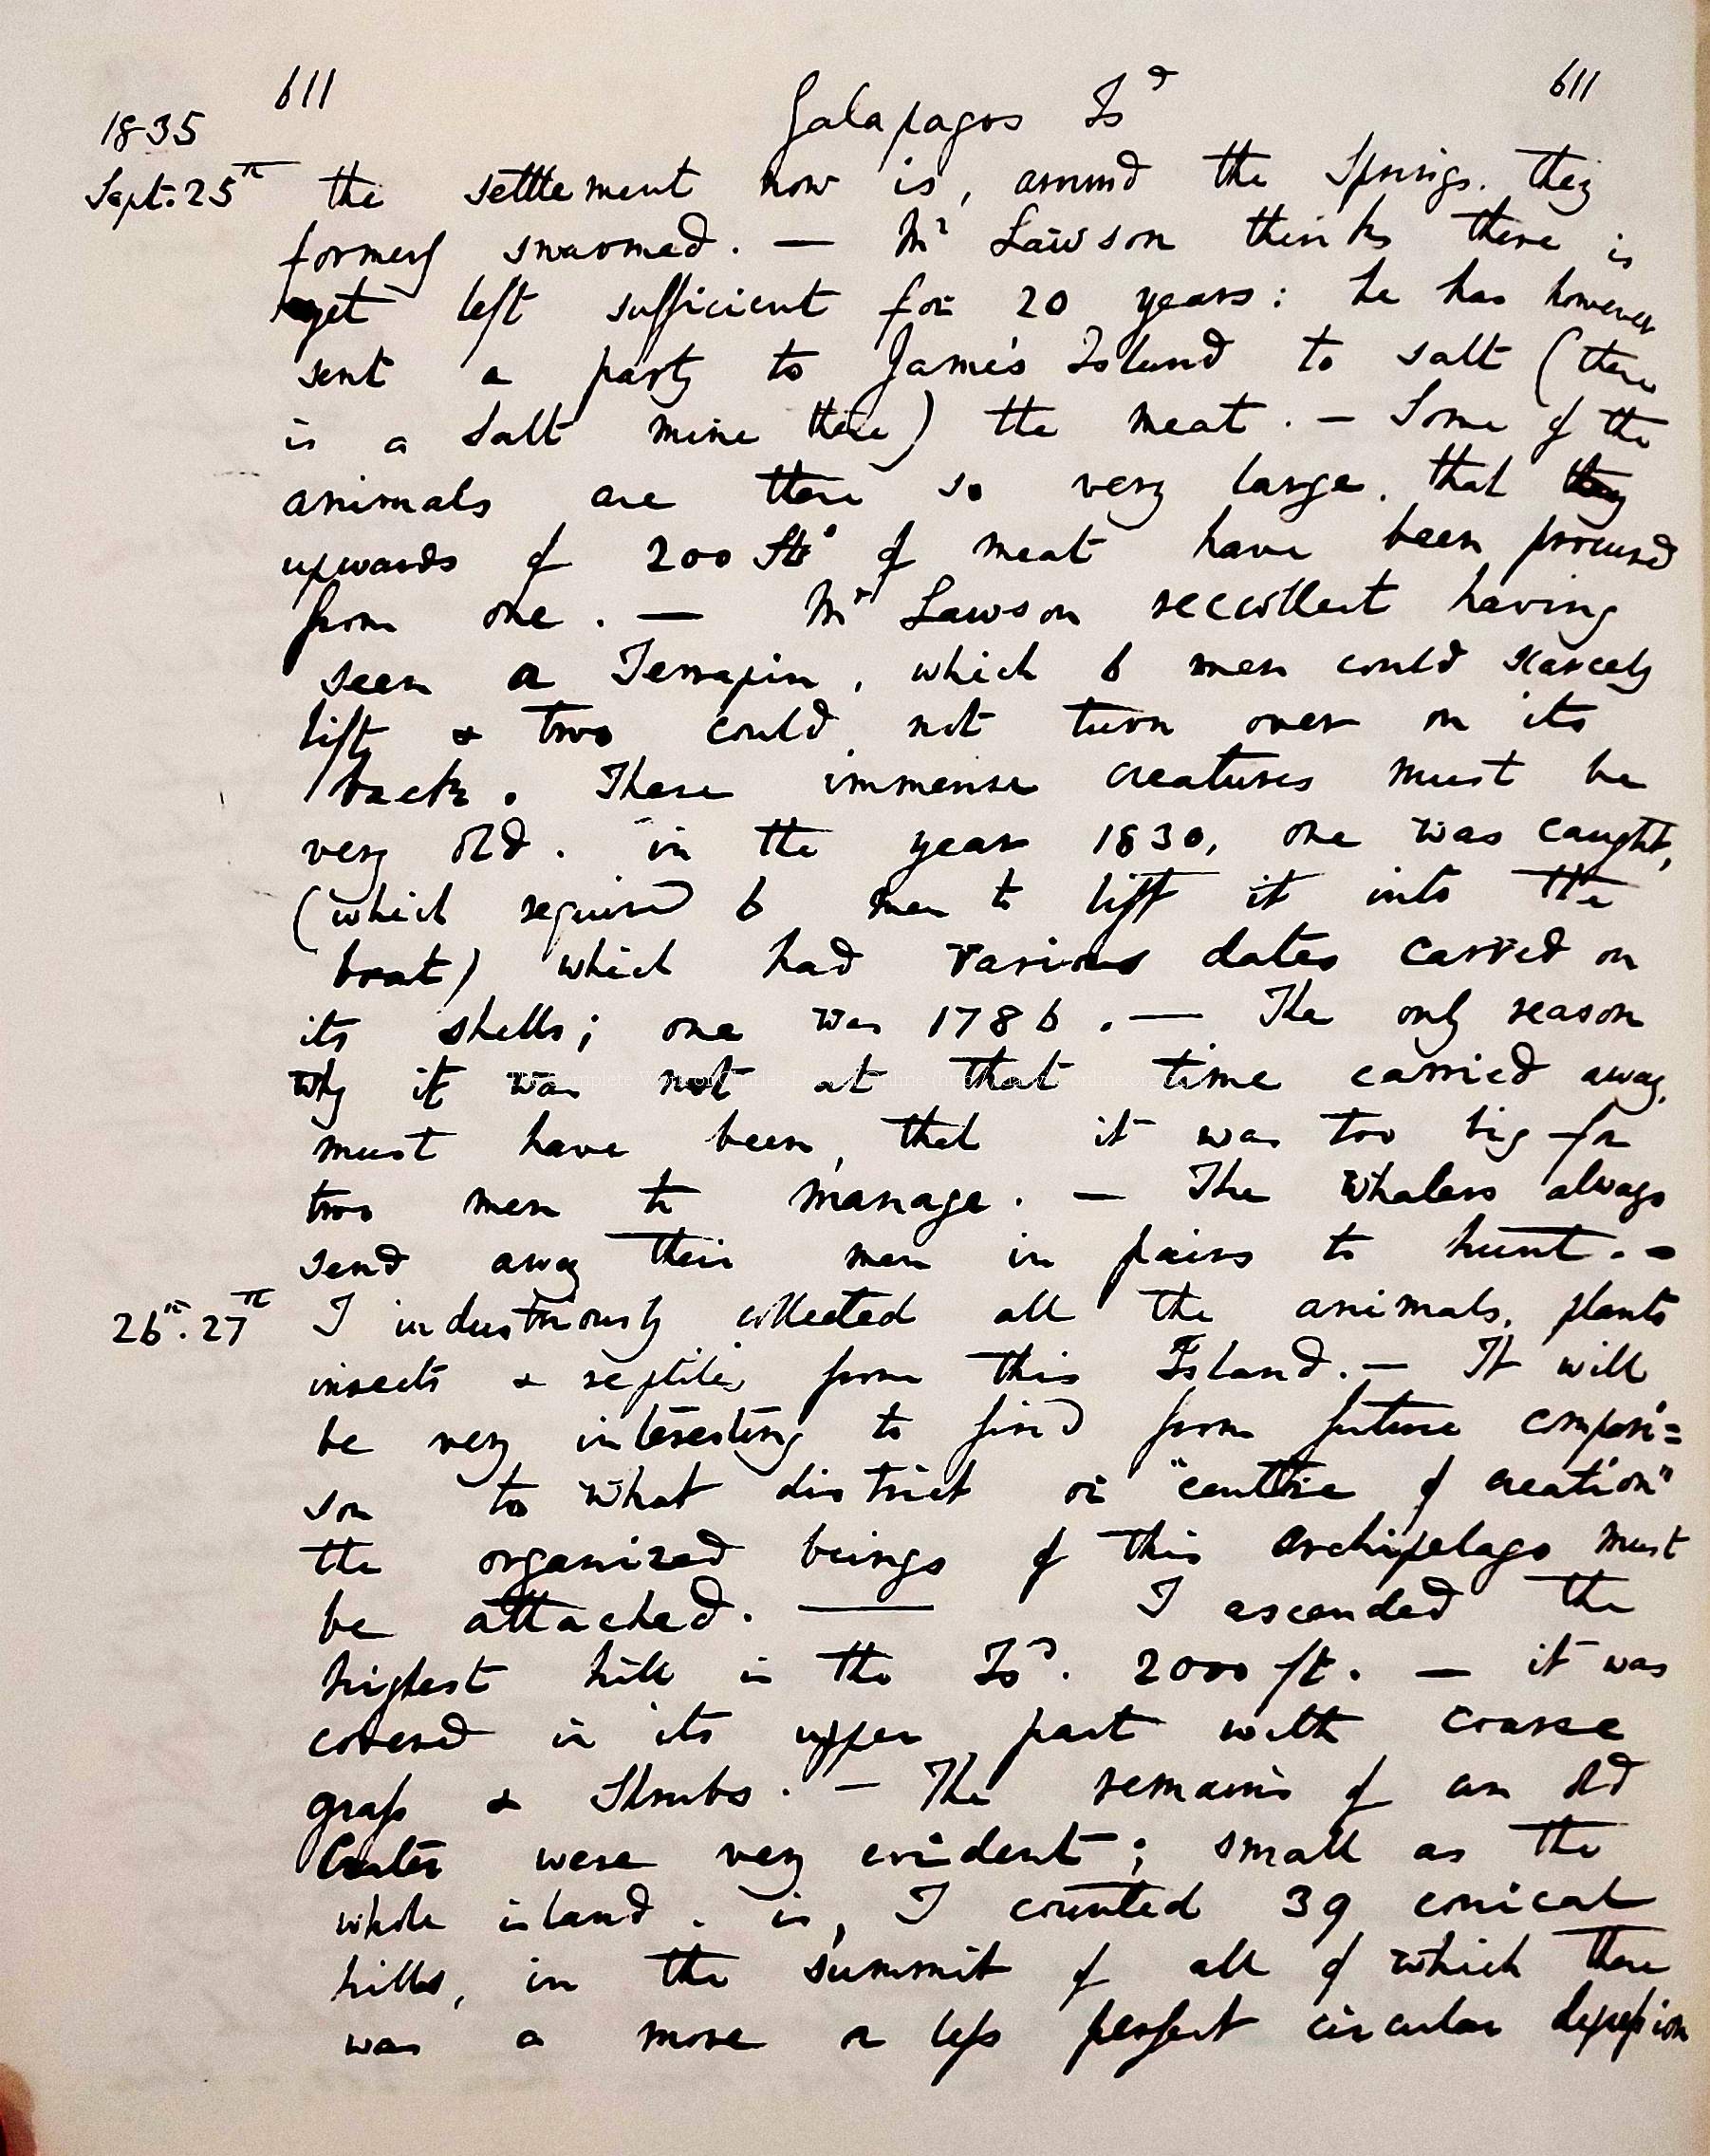 611 Galapagos Isd 611
1835
Sept. 25th the settlement now is, around the Springs. they
formerly swarmed. — Mr Lawson thinks there is
yet left sufficient for 20 years: he has however
sent a party to Jame's Island to salt (there
is a Salt mine there) the meat. — Some of the
animals are there so very large, that they
upwards of 200 lbs of meat have been procured
from one. — Mr Lawson reccollect having
seen a Terrapin, which 6 men could scarcely
lift & two could not turn over on its
back. These immense creatures must be
very old. in the year 1830, one was caught,
(which required 6 men to lift it into the
boat) which had various dates carved on
its shells; one was 1786. — The only reason
why it was not at that time carried away,
must have been, that it was too big for
two men to manage. — The Whalers always
send away their men in pairs to hunt. —
26th. 27th I industriously collected all the animals, plants
insects & reptiles from this Island. — It will
be very interesting to find from future compari=
son to what district or "centre of creation"
the organized beings of this archipelago must
be attached. — I ascended the
highest hill in the Isd. 2000 ft. — it was
covered in its upper part with coarse
grass & Shrubs. — The remains of an old
Crater were very evident; small as the
whole island is, I counted 39 conical
hills, in the summit of all of which there
was a more or less perfect circular depression